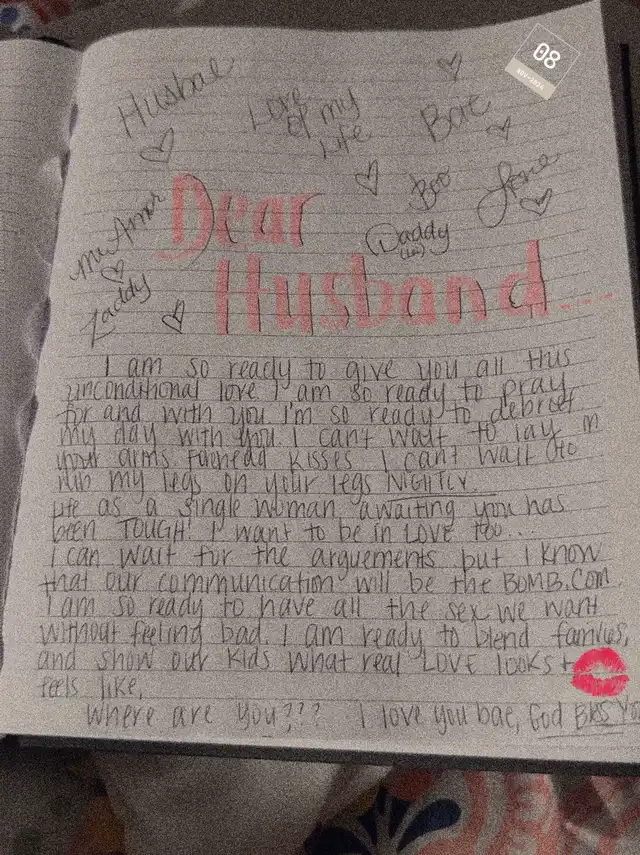 08
Husbae
Love of my Life
Bae
Boo
Daddy
Zaddy
Dear
Husband...
I am so ready to give you all this
unconditional love I am so ready to pray
for and with you I'm so ready to debrief
my day with you. I can't wait to lay in
your arms forhead kisses I cant wait to
rub my legs on your legs NIGHTLY
life as a single woman awaiting you has
been TOUGH! I want to be in LOVE too...
I can wait for the arguements but I know
that our communication will be the BOMB.COM
I am so ready to have all the sex we want
without feeling bad. I am ready to blend families,
and show our kids what real LOVE looks +
feels like.
Where are you??? I love you bae, God